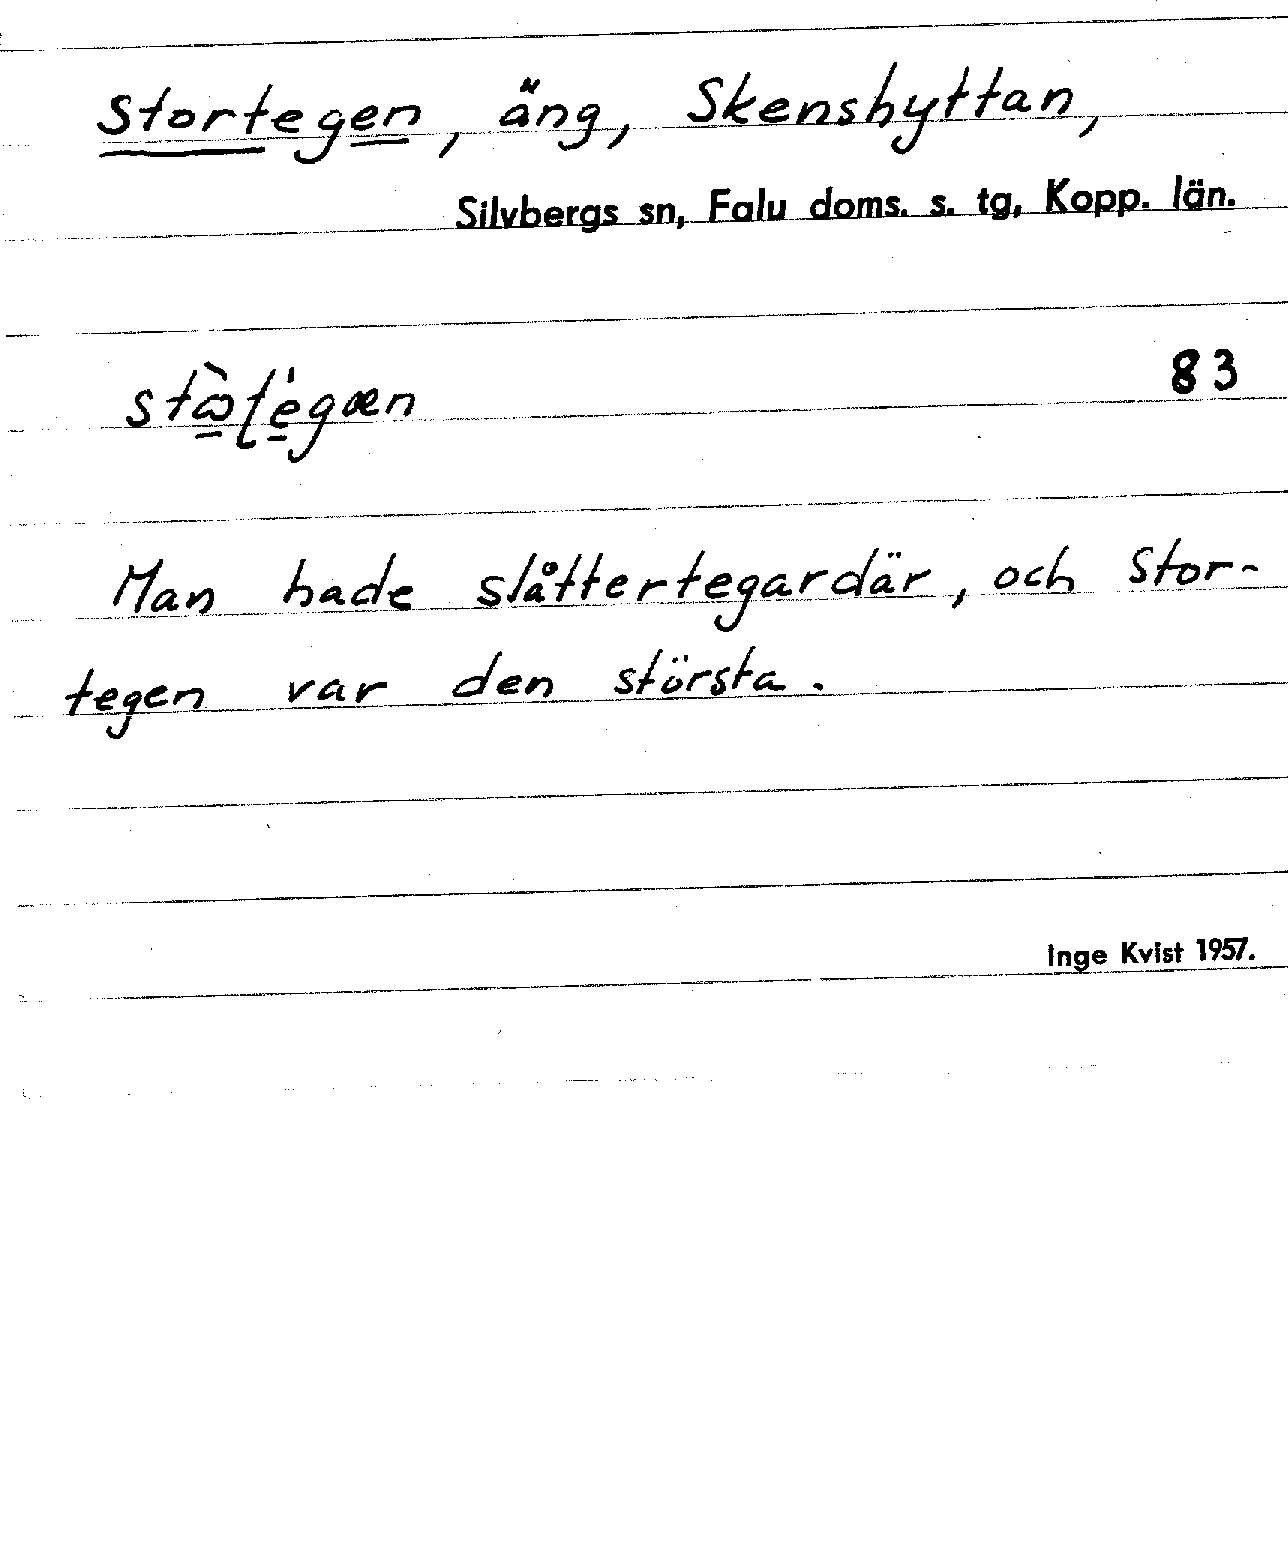 Stortegen, äng, Skenshyttan,
Silvbergs sn, Falu doms. s. tg, Kopp. län.
83
Man hade slåttertegardär, och Stor-
tegen var den största.
Inge Kvist 1957.